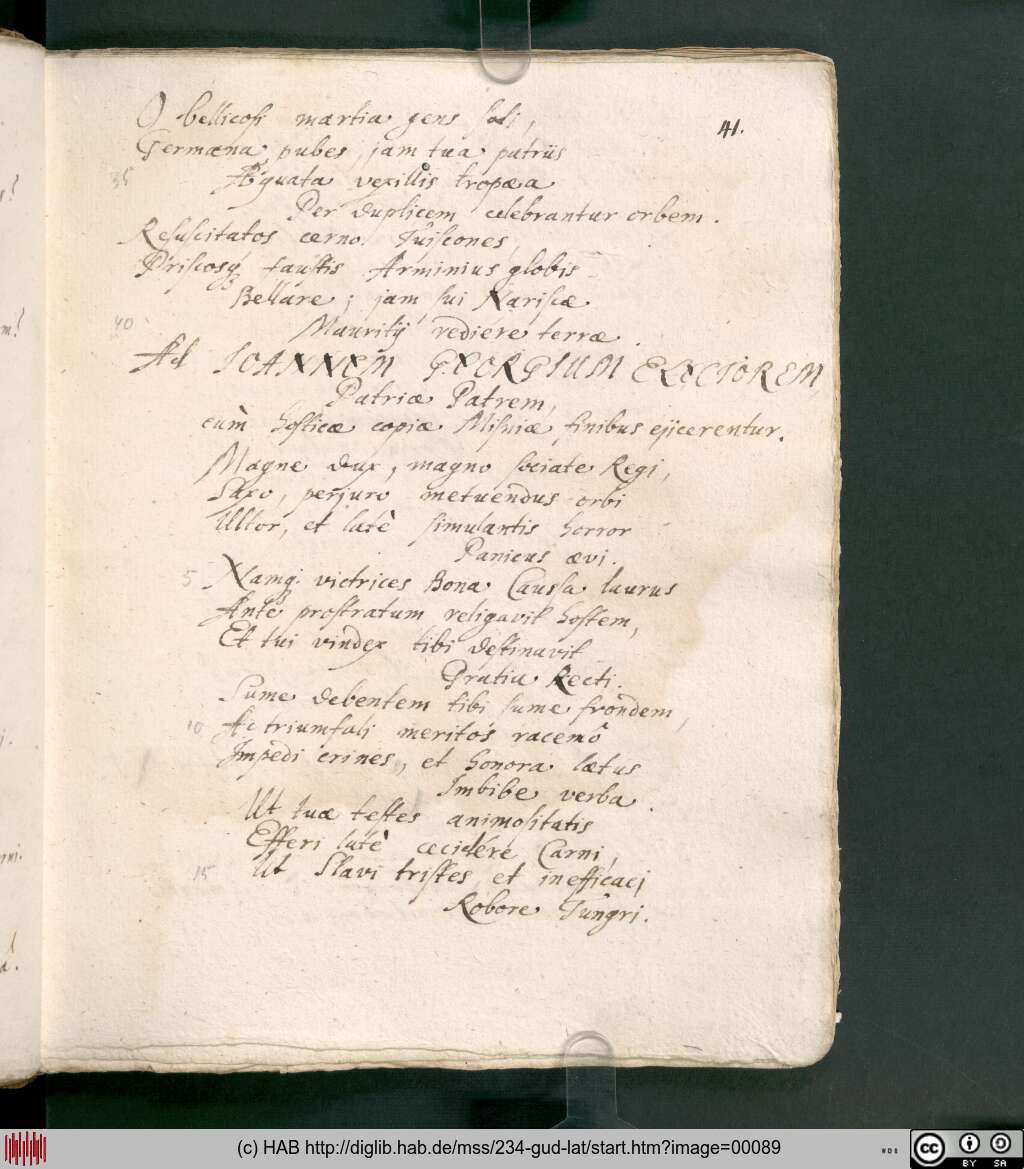 41.
O bellicosi martia gens soli,
Germana pubes, jam tua patriis
35 Æquata vexillis tropæa
Per duplicem celebrantur orbem.
Resuscitatos cerno Tuiscones,
Priscosq faustis Arminius globis
Bellare; jam sui Nariscæ
40 Mauritij rediere terræ.
Ad IOANNEM GEORGIUM ELECTOREM,
Patriæ Patrem,
cùm hosticæ copiæ Misniæ finibus ejicerentur.
Magne dux, magno sociate Regi,
Saxo, perjuro metuendus orbi
Ultor, et latè simulantis horror
Panicus ævi.
5 Namq victrices Bona Caussa laurus
Antè prostratum religavit hostem,
Et tui vindex tibi destinavit
Gratia Recti.
Sume debentem tibi sume frondem,
10 Ac triumfali meritos racemo
Impedi crines, et honora lætus
Imbibe verba.
Ut tuæ testes animositatis
Efferi latè cecidére Carni,
15 Ut Slavi tristes, et inefficacj
Robore Tungri.
(c) HAB http://diglib.hab.de/mss/234-gud-lat/start.htm?image=00089
WDB
cc BY SA